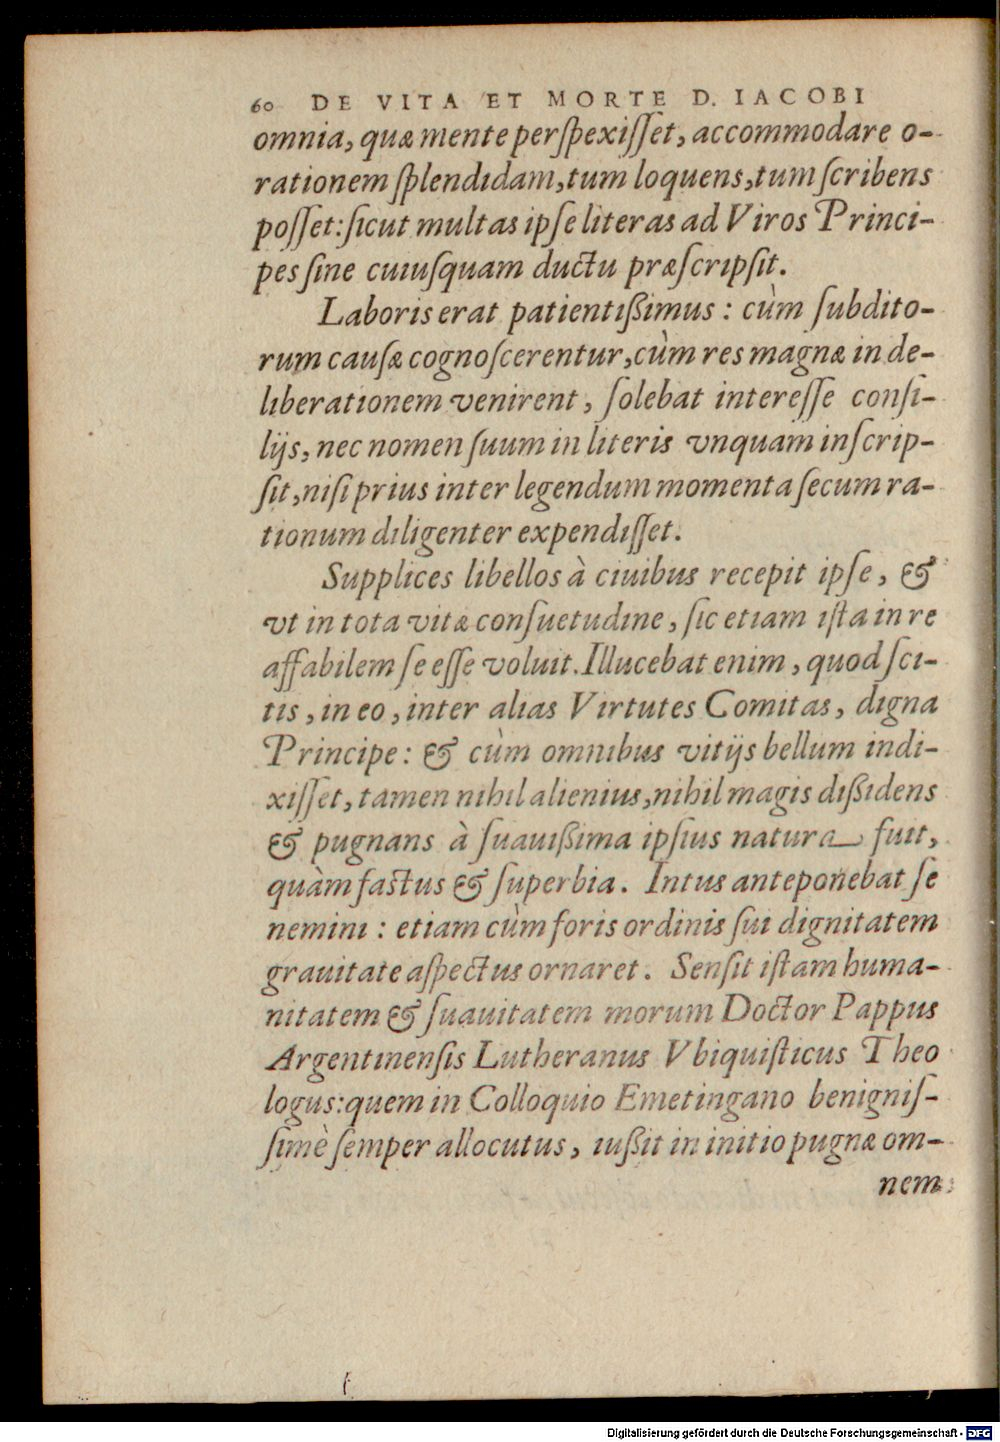 60 DE VITA ET MORTE D. IACOBI
omnia, quæ mente perſpexiſſet, accommodare o-
rationem ſplendidam, tum loquens, tum ſcribens
poſſet: ſicut multas ipſe literas ad Viros Princi-
pes ſine cuiuſquam ductu præſcripſit.
Laboris erat patientißimus : cùm ſubdito-
rum cauſæ cognoſcerentur, cùm res magnæ in de-
liberationem venirent, ſolebat intereſſe conſi-
lijs, nec nomen ſuum in literis vnquam inſcrip-
ſit, niſi prius inter legendum momenta ſecum ra-
tionum diligenter expendiſſet.
Supplices libellos à ciuibus recepit ipſe, &
vt in tota vitæ conſuetudine, ſic etiam iſta in re
affabilem ſe eſſe voluit. Illucebat enim, quod ſci-
tis, in eo, inter alias Virtutes Comitas, digna
Principe: & cùm omnibus vitijs bellum indi-
xiſſet, tamen nihil alienius, nihil magis dißidens
& pugnans à ſuauißima ipſius natura fuit,
quàm faſtus & ſuperbia. Intus anteponebat ſe
nemini : etiam cùm foris ordinis ſui dignitatem
grauitate aſpectus ornaret. Senſit iſtam huma-
nitatem & ſuauitatem morum Doctor Pappus
Argentinenſis Lutheranus Vbiquiſticus Theo
logus: quem in Colloquio Emetingano benigniſ-
ſimè ſemper allocutus, iußit in initio pugnæ om-
nem
Digitalisierung gefördert durch die Deutsche Forschungsgemeinschaft - DFG